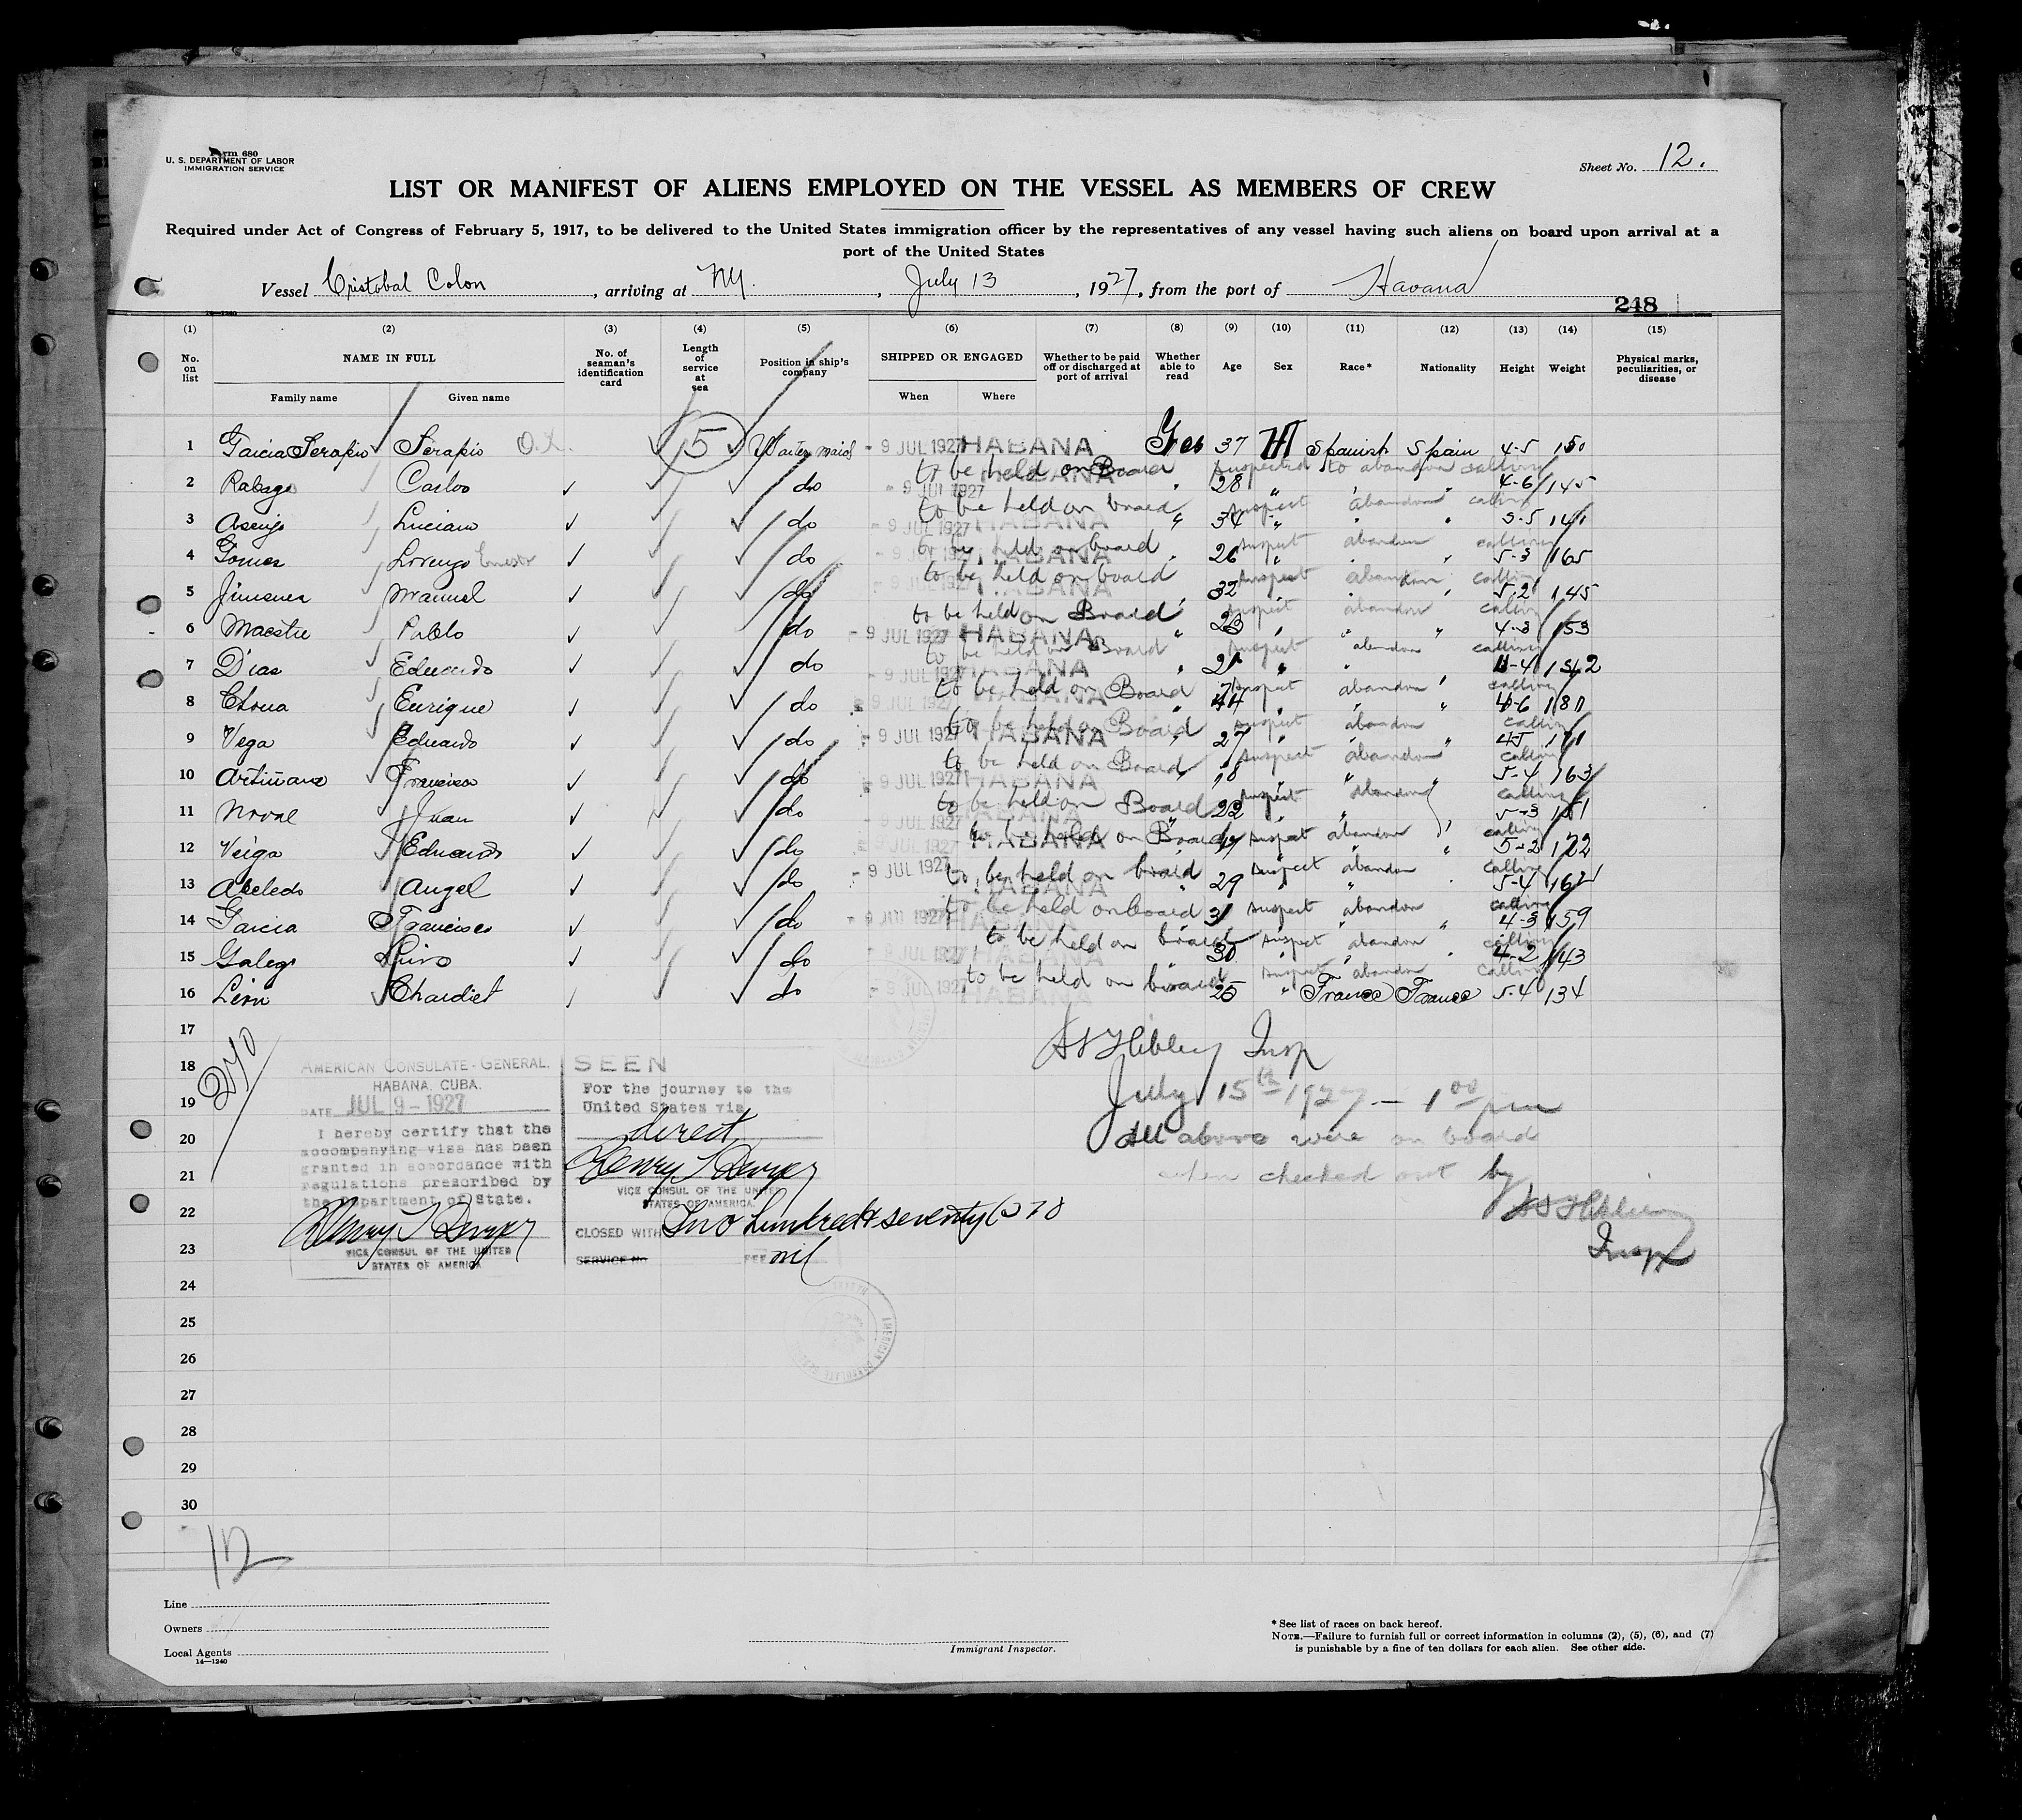 Form 680
U. S. DEPARTMENT OF LABOR
IMMIGRATION SERVICE
Sheet No. 12.
LIST OR MANIFEST OF ALIENS EMPLOYED ON THE VESSEL AS MEMBERS OF CREW
Required under Act of Congress of February 5, 1917, to be delivered to the United States immigration officer by the representatives of any vessel having such aliens on board upon arrival at a
port of the United States
Vessel Cristobal Colon, arriving at NY., July 13, 1927, from the port of Havana
248
(1) (2) (3) (4) (5) (6) (7) (8) (9) (10) (11) (12) (13) (14) (15)
No. on list NAME IN FULL No. of seaman's identification card Length of service at sea Position in ship's company SHIPPED OR ENGAGED Whether to be paid off or discharged at port of arrival Whether able to read Age Sex Race* Nationality Height Weight Physical marks, peculiarities, or disease
Family name Given name When Where
1 Garcia Serapio Serapio 5 - 9 JUL 1927 HABANA Yes 37 M Spanish Spain 4-5 150
to be held on Board suspected to abandon calling
2 Rabago Carlos do - 9 JUL 1927 HABANA 28 " 4-6 145
to be held on board suspect abandon calling
3 Asenjo Luciano do - 9 JUL 1927 HABANA " 34 " 5-5 141
to be held on board suspect abandon calling
4 Gomez Lorenzo do - 9 JUL 1927 HABANA 26 " 5-3 165
to be held on board suspect abandon calling
5 Jimenez Manuel do - 9 JUL 1927 HABANA 32 5-2 145
to be held on Board suspect abandon calling
6 Maestre Pablo do - 9 JUL 1927 HABANA " 23 " " 4-3 153
to be held on Board suspect abandon calling
7 Dias Eduardo do - 9 JUL 1927 HABANA 21 "
to be held on Board suspect abandon calling
8 Enrique do 9 JUL 1927 HABANA 44 "
to be held on Board suspect abandon calling
9 Vega Eduardo do - 9 JUL 1927 HABANA 27
to be held on Board suspect abandon calling
10 Artiñano Francisco do - 9 JUL 1927 HABANA " " 5-4 163
to be held on Board suspect abandon calling
11 Noval Juan do - 9 JUL 1927 HABANA 22 " 5-3
to be held on Board suspect abandon calling
12 Veiga Eduardo do - 9 JUL 1927 HABANA " 5-2
to be held on board suspect abandon calling
13 Abeledo Angel do 9 JUL 1927 HABANA 29 " 5-4 162
to be held on board suspect abandon calling
14 Garcia Francisco do - 9 JUL 1927 HABANA 31 " 4-3 159
to be held on board suspect abandon calling
15 Galego do - 9 JUL 1927 HABANA 30 4-2 143
to be held on board suspect abandon calling
16 León Chardiet do - 9 JUL 1927 HABANA 25 " France France 5-4 134
17
18
19
20
21
22
23
24
25
26
27
28
29
30
270
AMERICAN CONSULATE-GENERAL,
HABANA, CUBA.
DATE JUL 9 - 1927
I hereby certify that the
accompanying visa has been
granted in accordance with
regulations prescribed by
the Department of State.
VICE CONSUL OF THE UNITED
STATES OF AMERICA
SEEN
For the journey to the
United States via
direct
VICE CONSUL OF THE UNITED
STATES OF AMERICA
CLOSED WITH Two hundred & seventy (270
SERVICE No. FEE nil
Insp
July 15th 1927 - 1 00 pm
All above were on board
when checked out by
Insp
12
Line
Owners
Local Agents
14—1240
Immigrant Inspector.
* See list of races on back hereof.
NOTE.—Failure to furnish full or correct information in columns (2), (5), (6), and (7)
is punishable by a fine of ten dollars for each alien. See other side.